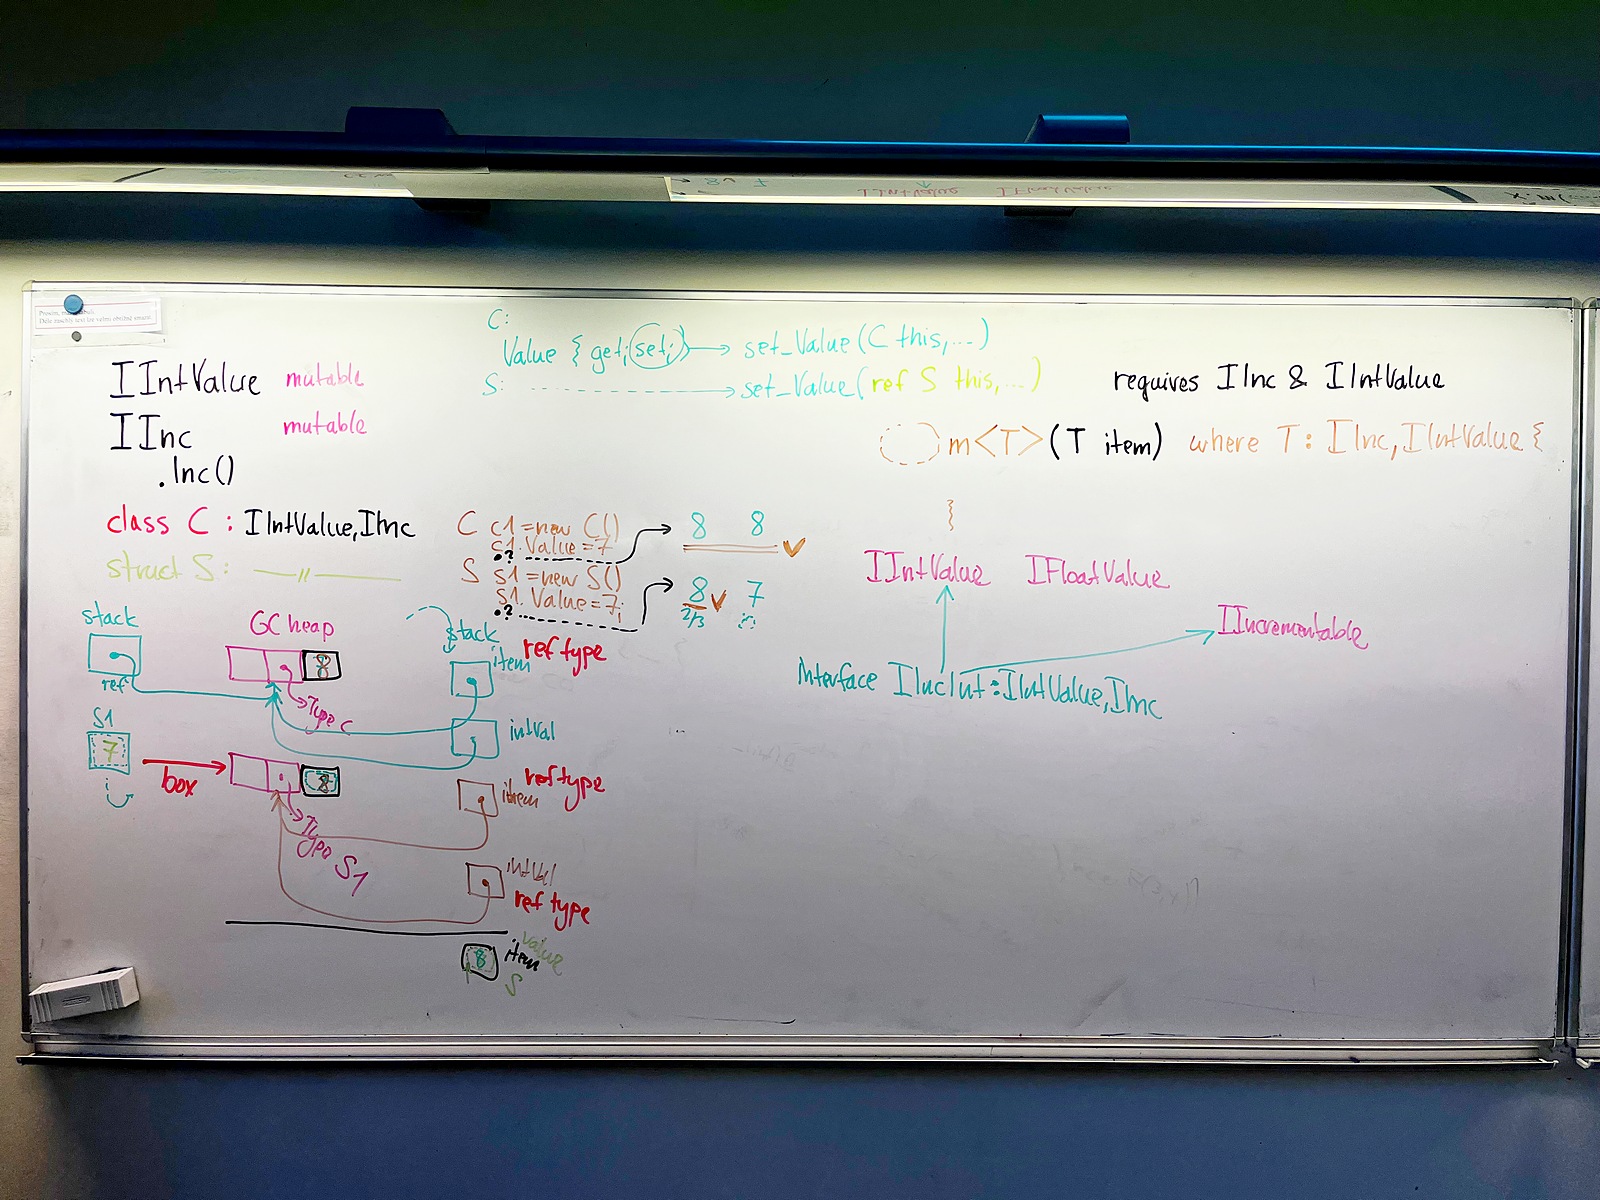 IIntValue mutable
IInc mutable
.Inc()
class C : IIntValue, IInc
struct S: —〃—
C:
Value { get; set; } → set_Value(C this, ...)
S: - - - - → set_Value(ref S this, ...)
requires IInc & IIntValue
m<T>(T item) where T : IInc, IIntValue {
}
C c1 = new C()
c1.Value = 7
.? 8 8 ✓
S s1 = new S()
s1.Value = 7;
.? 8 ✓ 7
2/3
IIntValue IFloatValue
IIncrementable
Interface IIncInt : IIntValue, IInc
stack
ref
GC heap
8
Type C
stack
item ref type
intVal
S1
7
box
8
Type S1
item ref type
intVal
ref type
8
item value
S